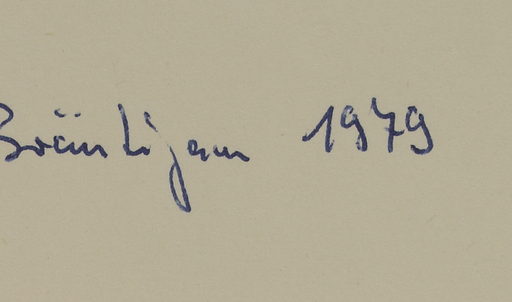 Bräutigam 1979